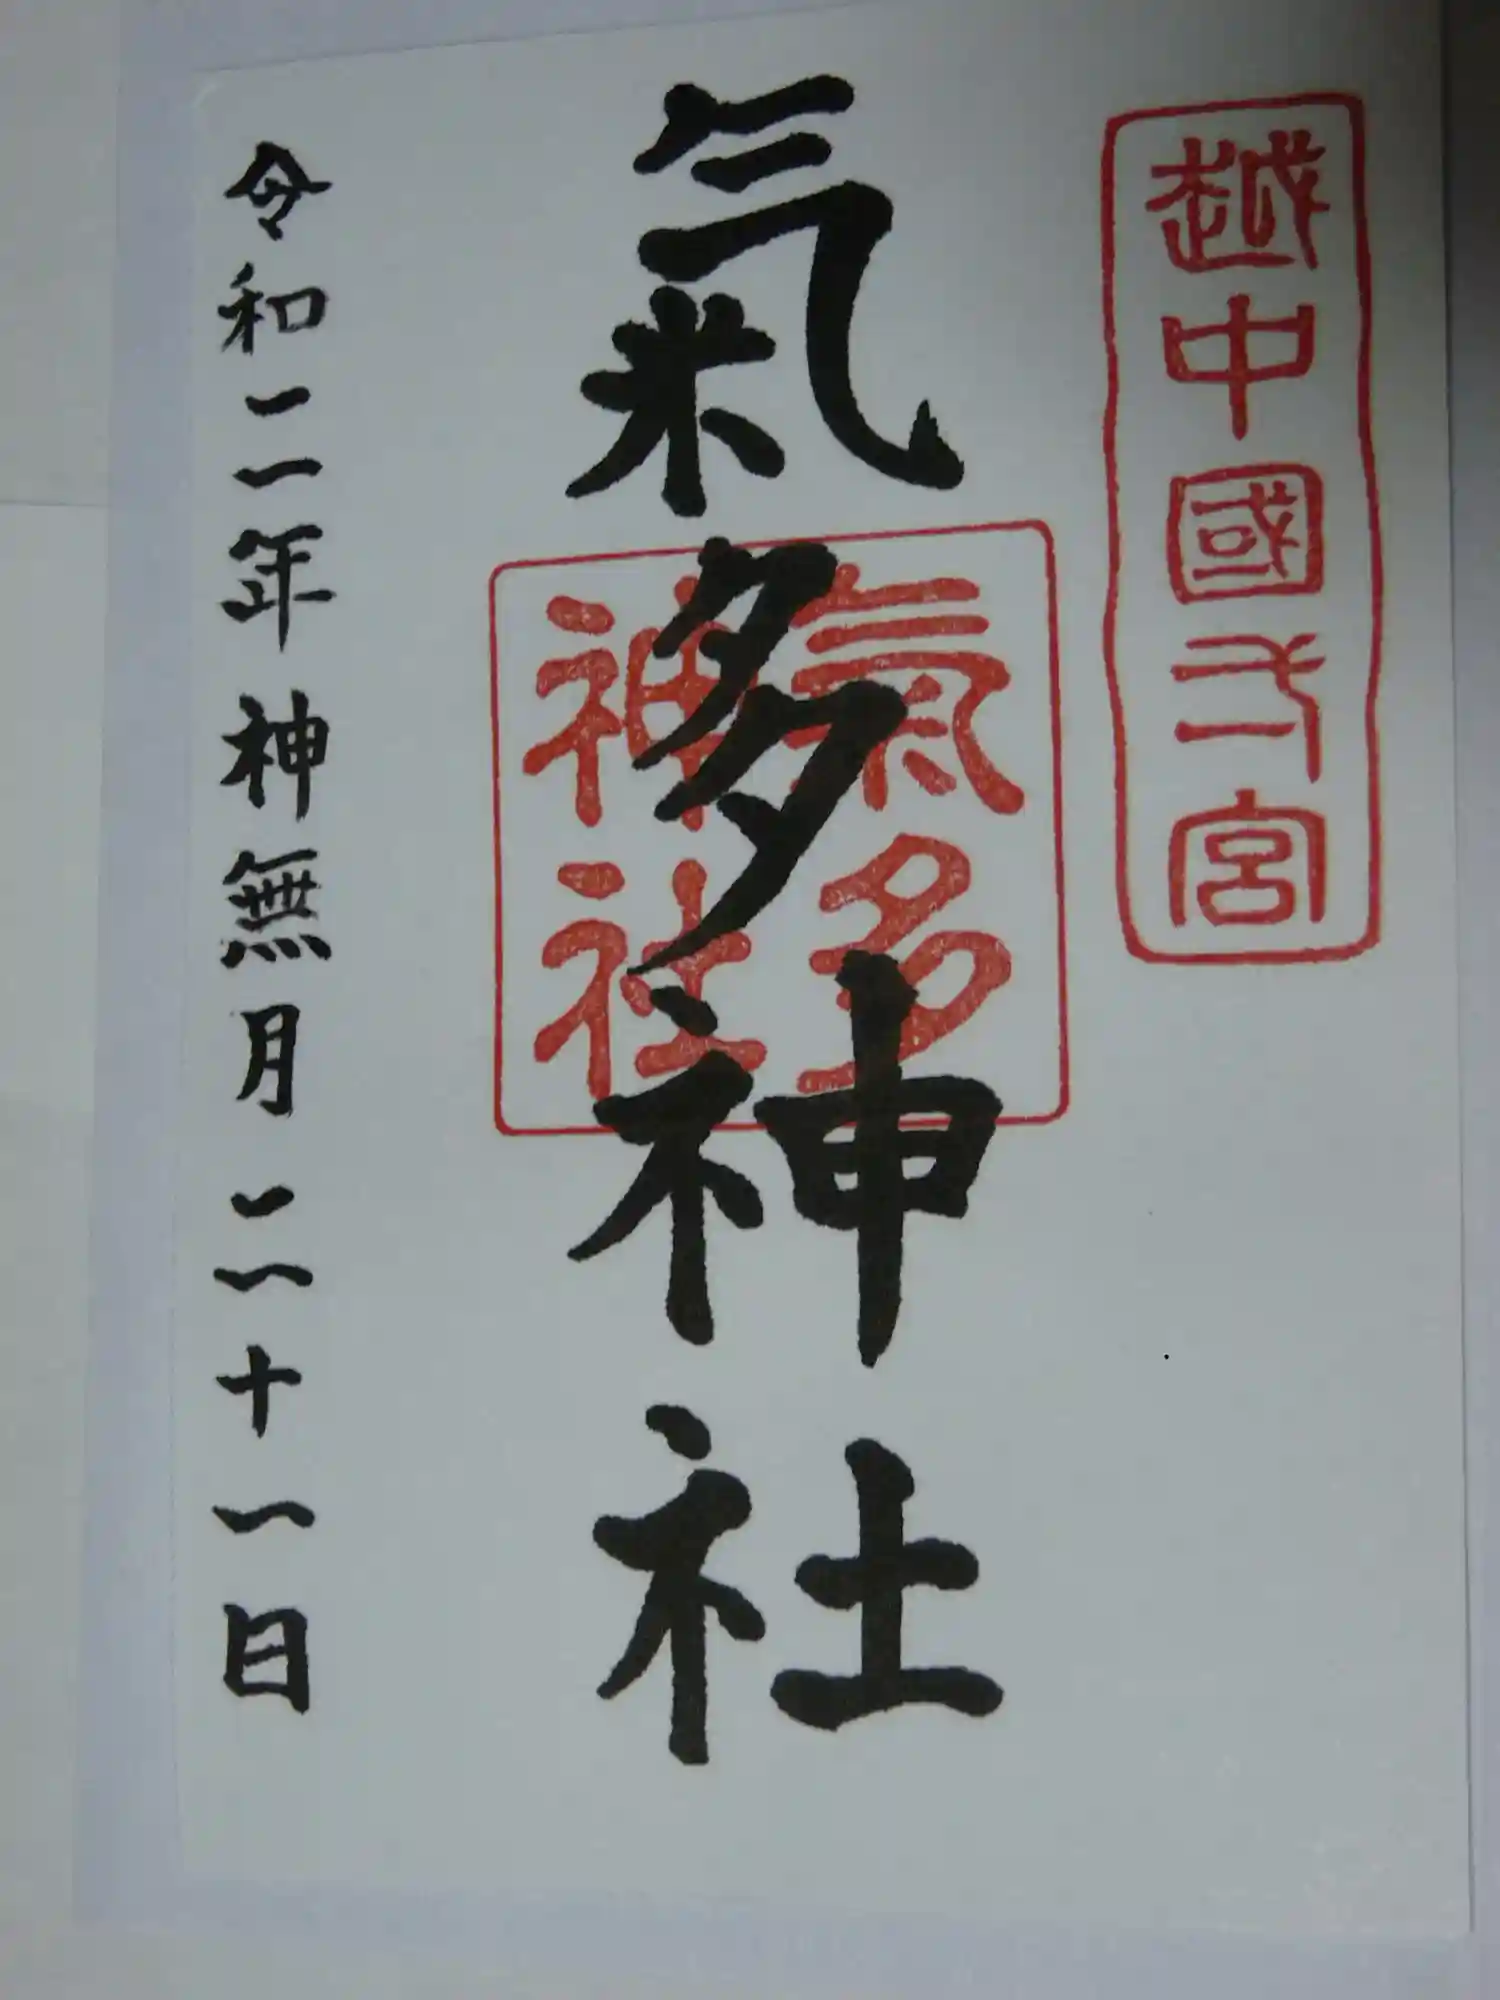 越中國弌宮
氣多神社
氣多
神社
令和二年神無月二十一日